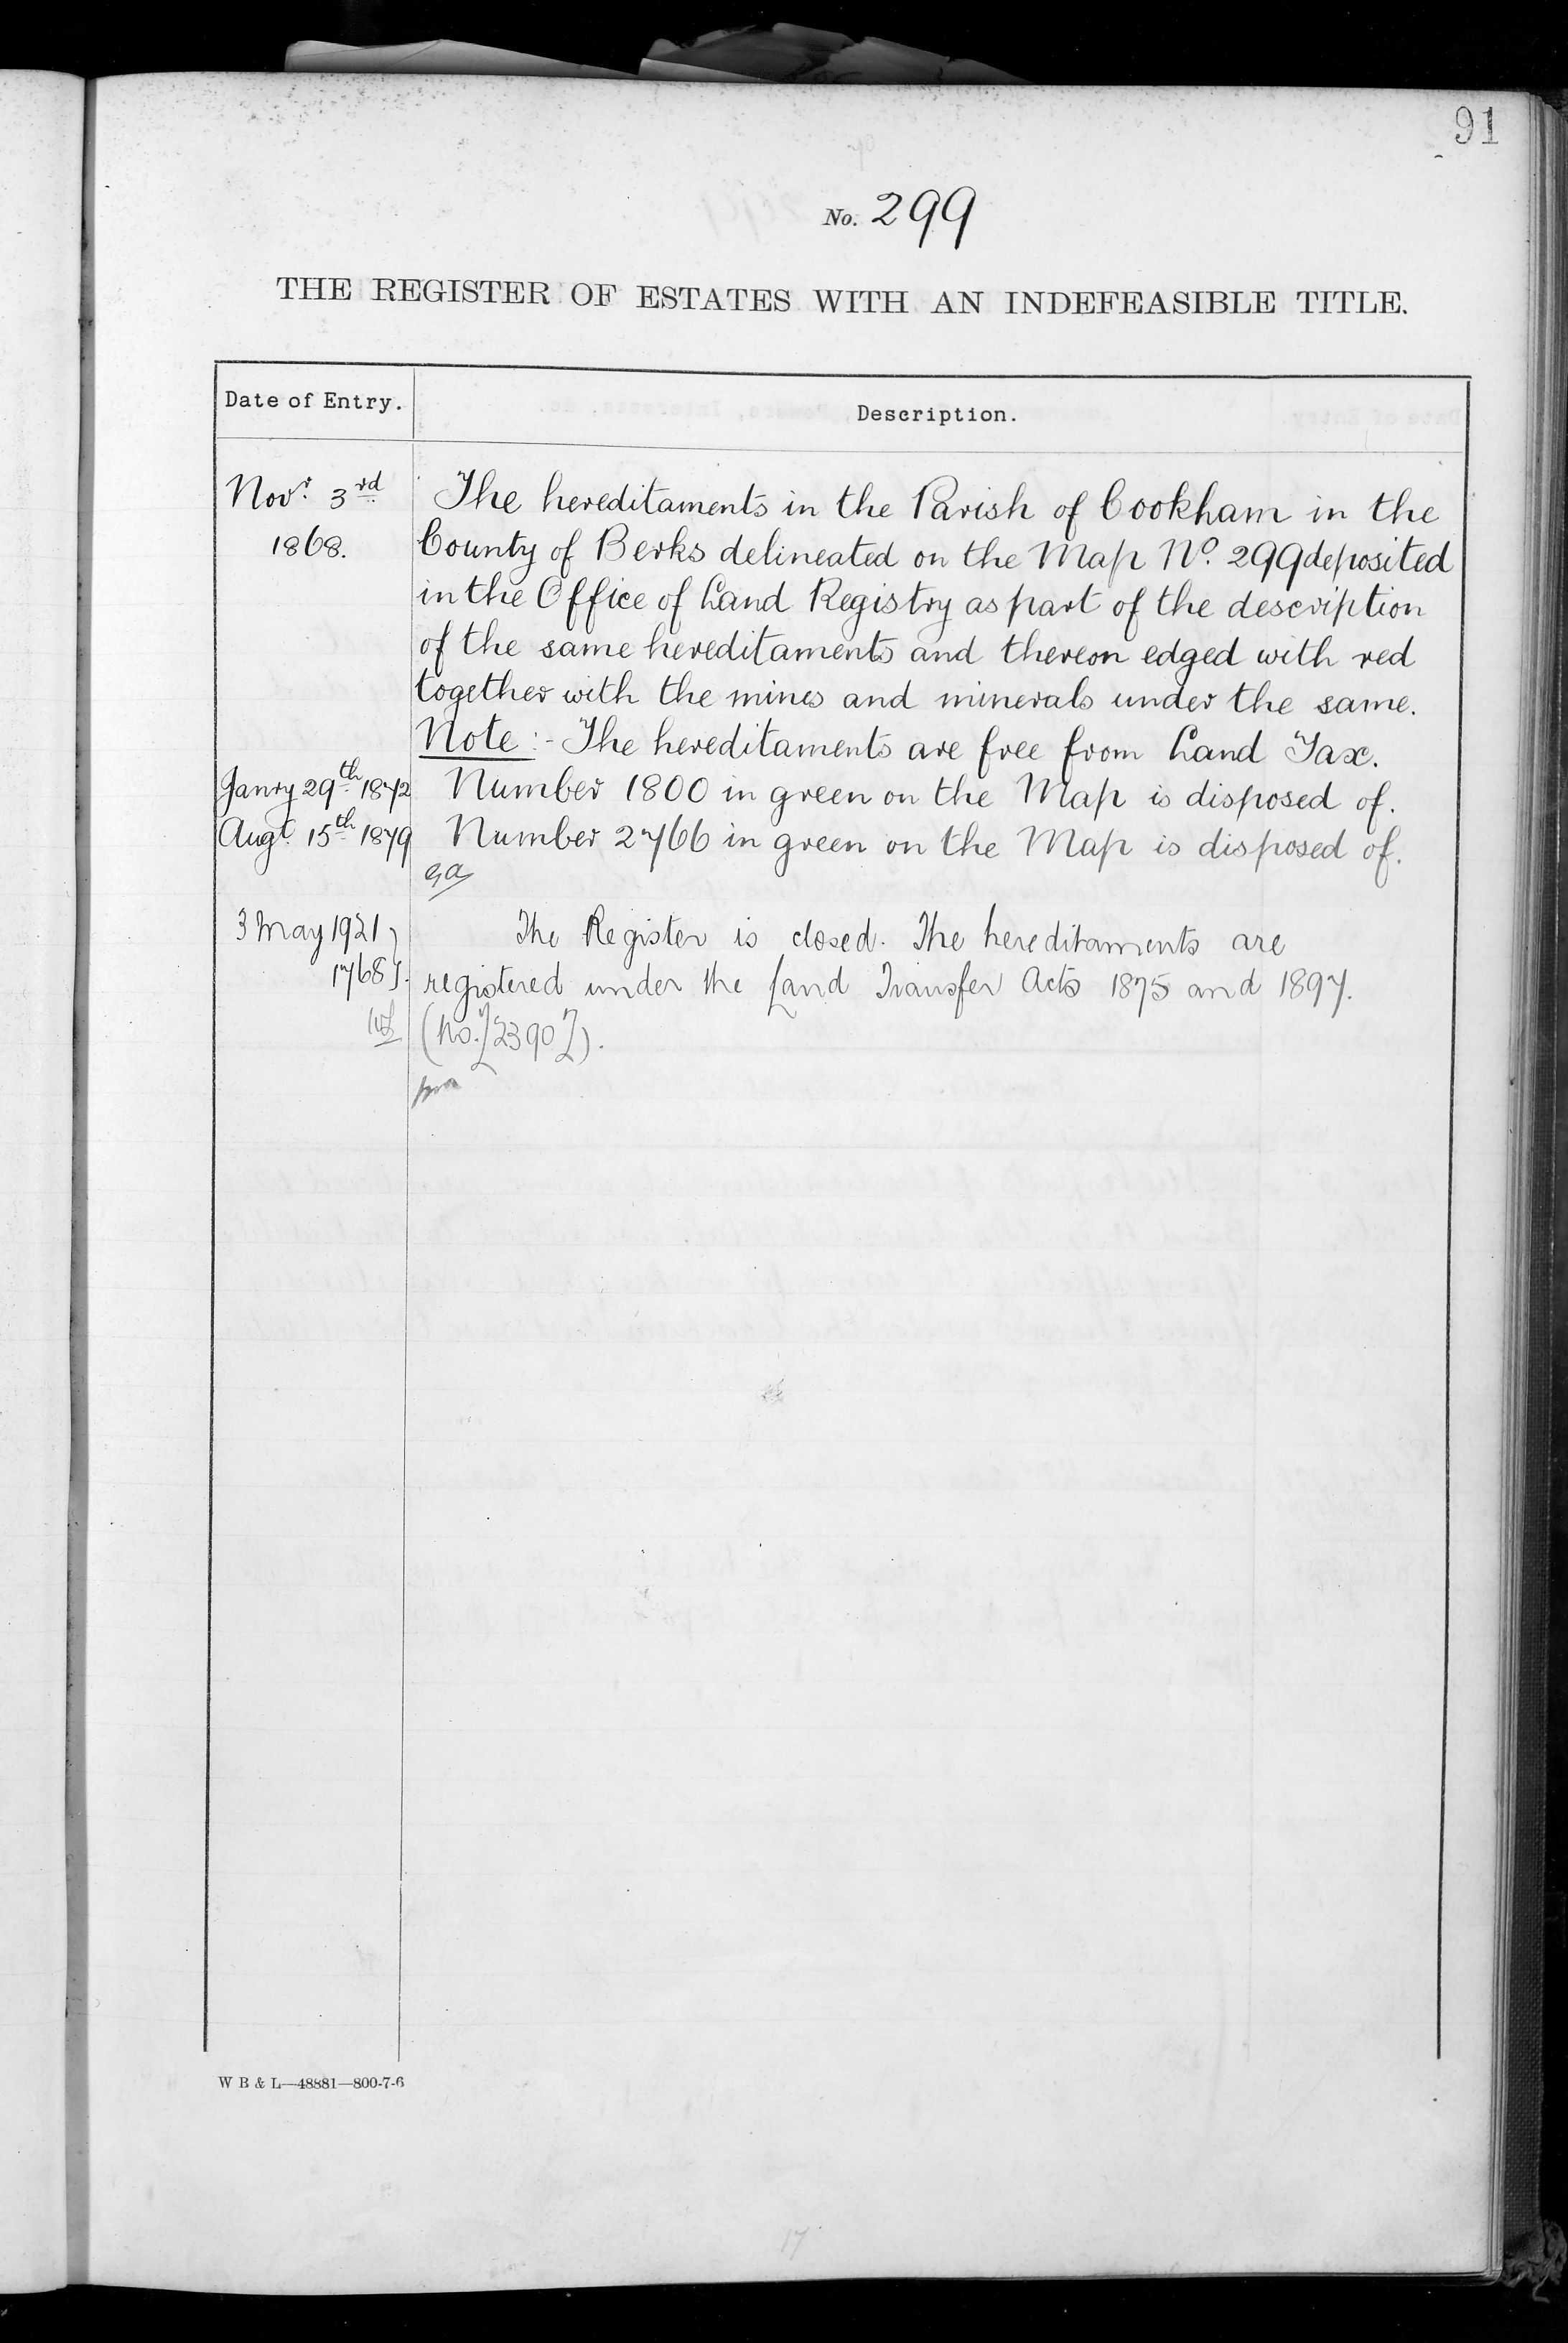 91
No. 299
THE REGISTER OF ESTATES WITH AN INDEFEASIBLE TITLE.
Date of Entry. Description.
Novr. 3rd The hereditaments in the Parish of Cookham in the
1868. County of Berks delineated on the Map No. 299 deposited
in the Office of Land Registry as part of the description
of the same hereditaments and thereon edged with red
together with the mines and minerals under the same.
Note :- The hereditaments are free from Land Tax.
Janry 29th 1872 Number 1800 in green on the Map is disposed of.
Augt. 15th 1879 Number 2766 in green on the Map is disposed of.
3 May 1921 The Register is closed. The hereditaments are
1768 registered under the Land Transfer Acts 1875 and 1897.
W B & L—48881—800-7-6
17